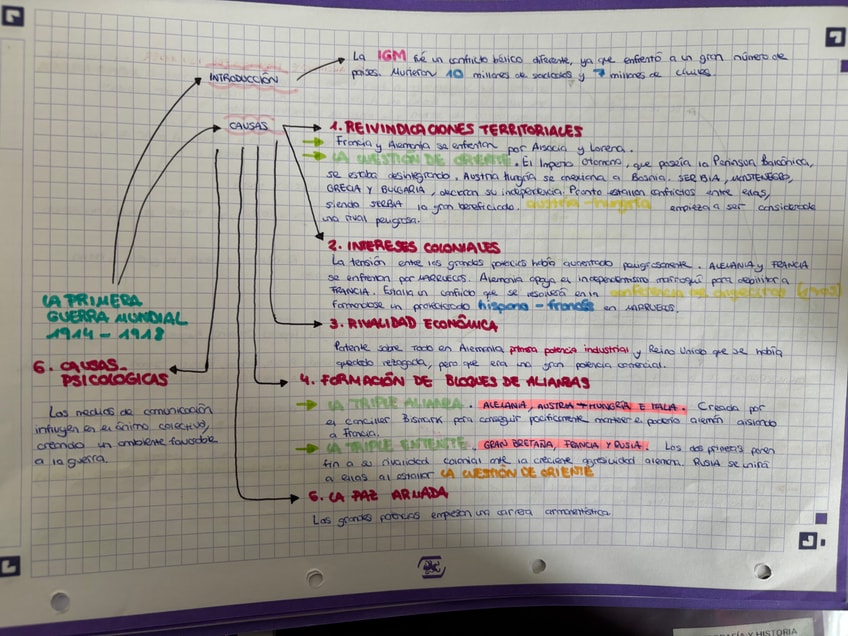 INTRODUCCIÓN
La IGM fué un conflicto bélico diferente, ya que enfrentó a un gran número de
países. Murieron 10 millones de soldados y 7 millones de civiles.
CAUSAS
1. REIVINDICACIONES TERRITORIALES
Francia y Alemania se enfrentan por Alsacia y Lorena.
LA CUESTIÓN DE ORIENTE. El Imperio Otomano, que poseía la Península Balcánica,
se estaba desintegrando. Austria Hungría se anexiona a Bosnia. SERBIA, MONTENEGRO,
GRECIA Y BULGARIA, declaran su independencia. Pronto estallan conflictos entre ellas,
siendo SERBIA la gran beneficiada. Austria-Hungría empieza a ser considerada
una rival peligrosa.
2. INTERESES COLONIALES
La tensión entre las grandes potencias había aumentado peligrosamente. ALEMANIA y FRANCIA
se enfrentan por MARRUECOS. Alemania apoya el independentismo marroquí para debilitar a
FRANCIA. Estalla un conflicto que se resolverá en la conferencia de Algeciras
formandose un protectorado hispano-francés en MARRUECOS.
LA PRIMERA
GUERRA MUNDIAL
1914-1918
3. RIVALIDAD ECONÓMICA
Patente sobre todo en Alemania primera potencia industrial y Reino Unido que se había
quedado retrasada, pero que era una gran potencia comercial.
6. CAUSAS
PSICOLOGICAS
Los medios de comunicación
influyen en el ánimo colectivo,
creando un ambiente favorable
a la guerra.
4. FORMACIÓN DE BLOQUES DE ALIANZAS
LA TRIPLE ALIANZA. ALEMANIA, AUSTRIA-HUNGRIA E ITALIA. Creada por
el canciller Bismark para conseguir pacificamente mantener el poderío alemán aislando
a Francia.
LA TRIPLE ENTENTE. GRAN BRETAÑA, FRANCIA Y RUSIA. Los dos primeros ponen
fin a su rivalidad colonial ante la creciente agresividad alemana. RUSIA se unirá
a ellas al estallar LA CUESTIÓN DE ORIENTE
5. LA PAZ ARMADA
Las grandes potencias empiezan una carrera armamentística.
FÍA Y HISTORIA